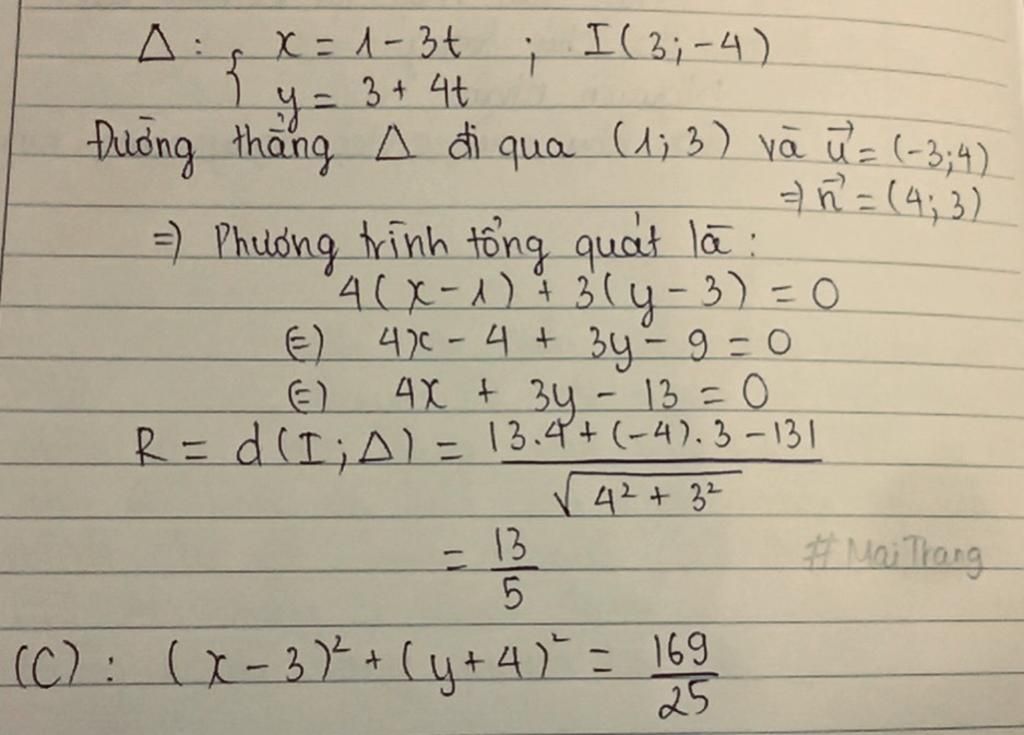 Δ: { x = 1 - 3t ; I(3; -4)
y = 3 + 4t
Đường thẳng Δ đi qua (1; 3) và u⃗ = (-3;4)
=) n⃗ = (4; 3)
=) Phương trình tổng quát là:
4(x - 1) + 3(y - 3) = 0
(=) 4x - 4 + 3y - 9 = 0
(=) 4x + 3y - 13 = 0
R = d(I; Δ) = |3.4 + (-4).3 - 13| / √(4² + 3²)
= 13/5
#MaiTrang
(C): (x - 3)² + (y + 4)² = 169/25